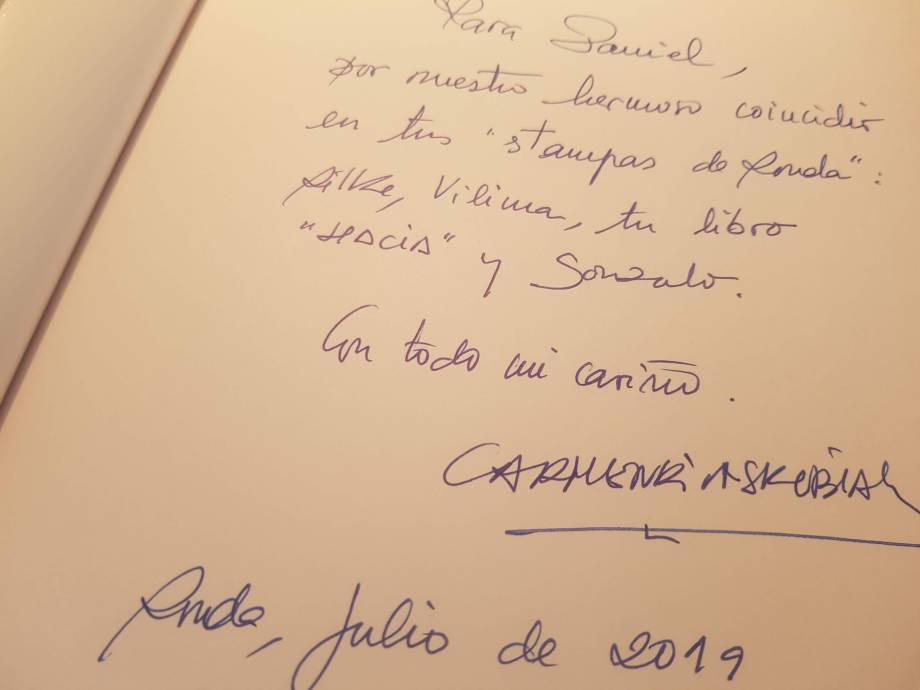 Para Daniel,
por nuestro hermoso coincidir
en tus "stampas de Ronda":
Rilke, Vilima, tu libro
"HACIA" y Gonzalo.
Con todo mi cariño.
Ronda, Julio de 2019